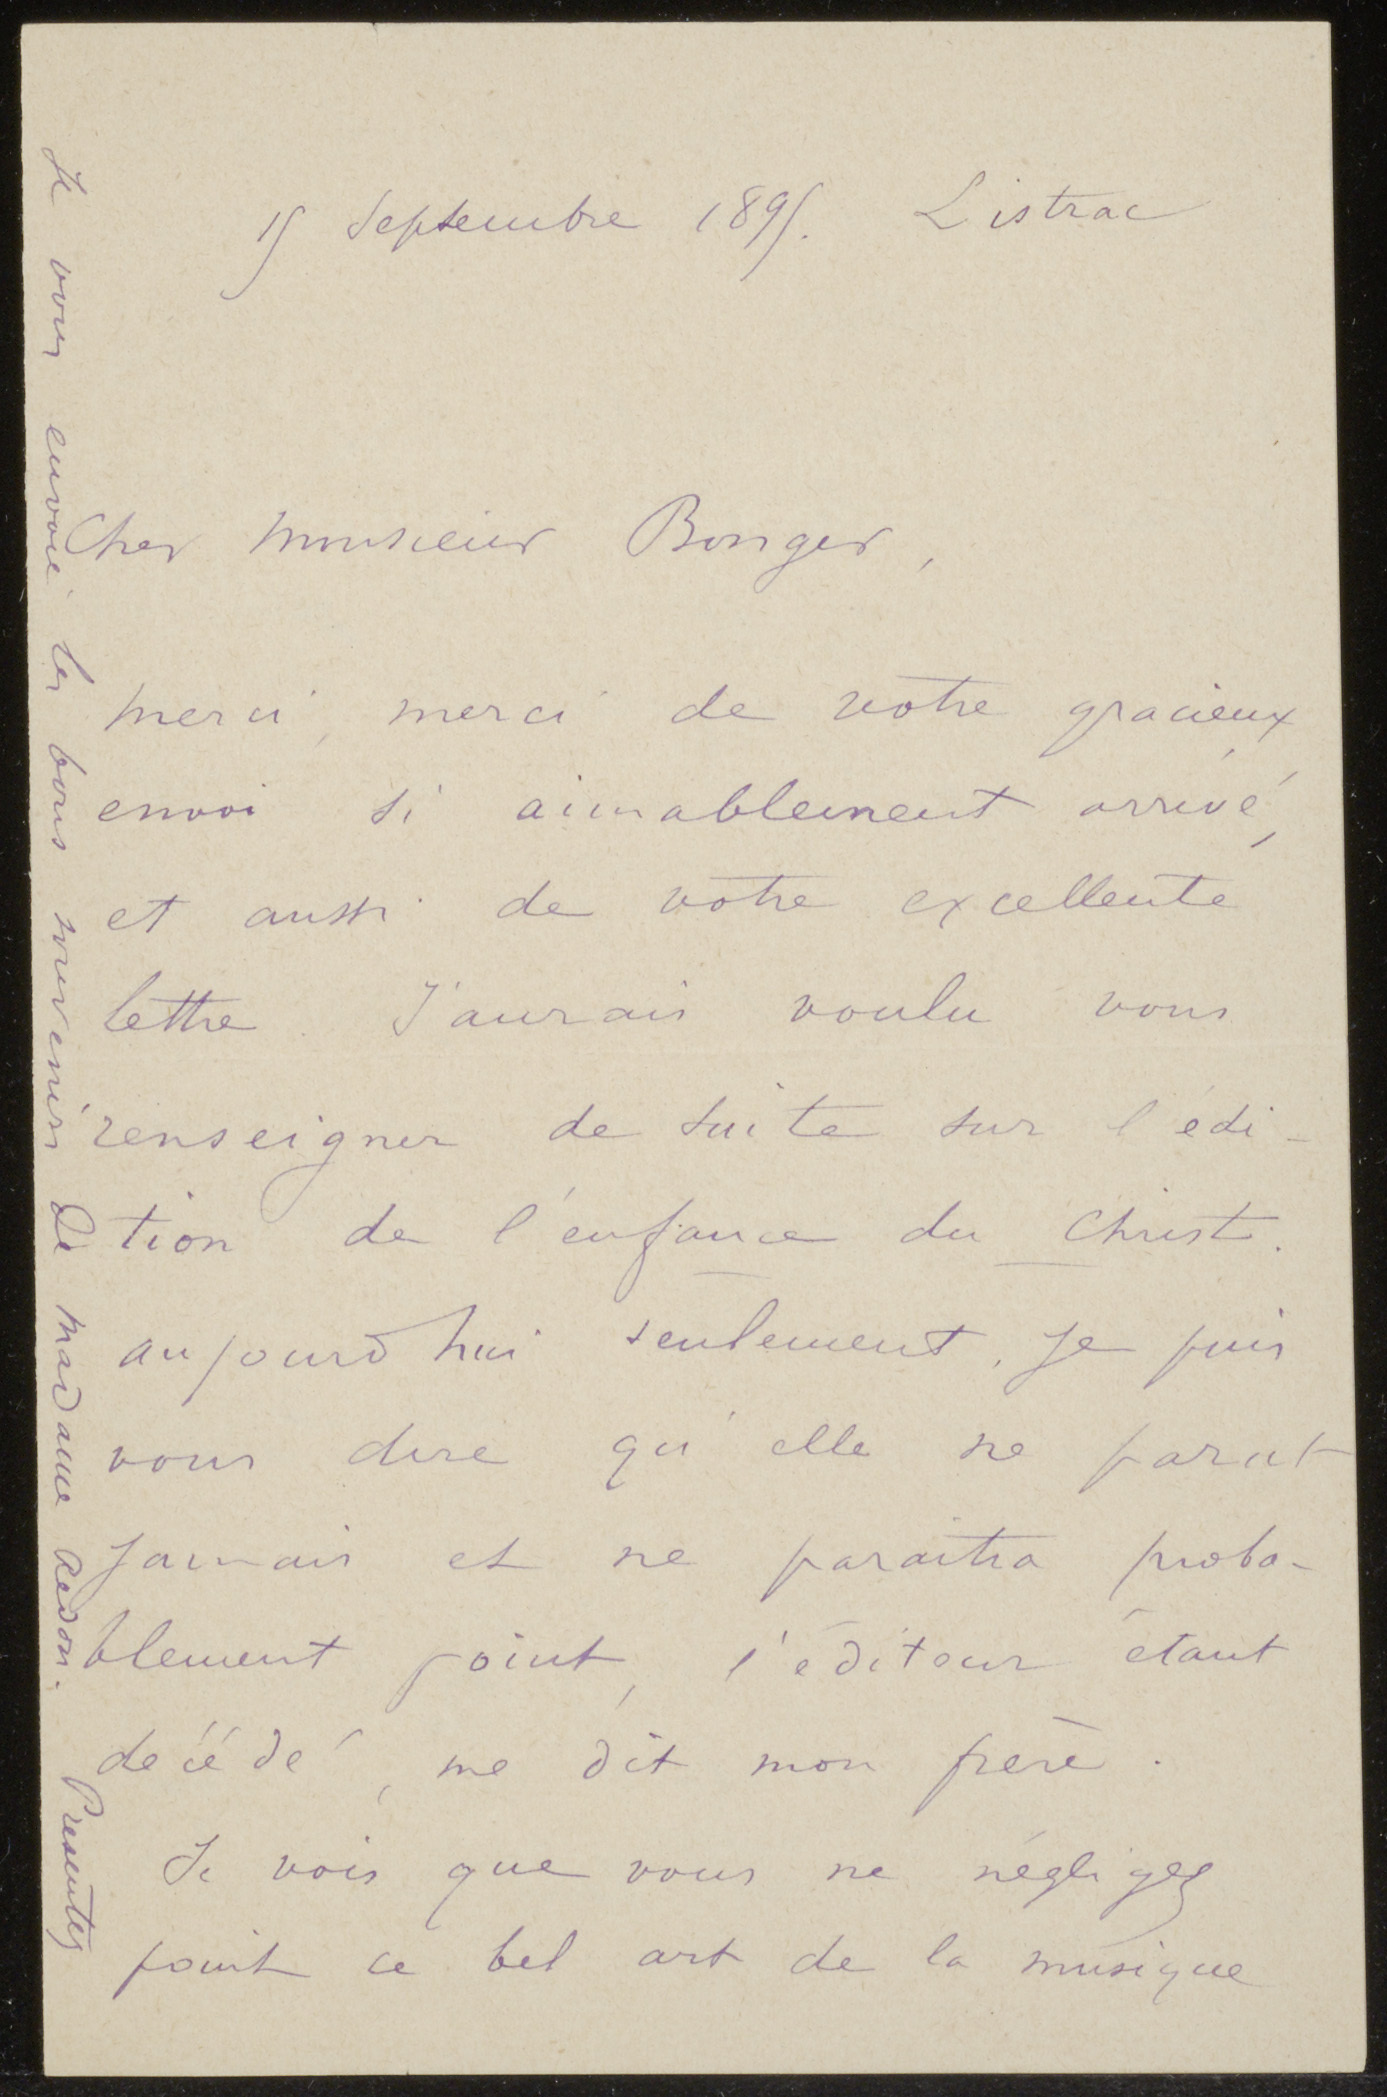 15 Septembre 1895. Listrac
Cher Monsieur Bonger,
merci, merci de votre gracieux
envoi si aimablement arrivé,
et aussi de votre excellente
lettre. J'aurais voulu vous
renseigner de suite sur l'édi-
tion de l'enfance du Christ.
aujourd'hui seulement, je puis
vous dire qu'elle ne parut
jamais et ne paraitra proba-
blement point, l'éditeur étant
décédé, me dit mon frère.
Je vois que vous ne négligez
point ce bel art de la musique
Je vous envoie les bons souvenirs de madame Redon. Presentez